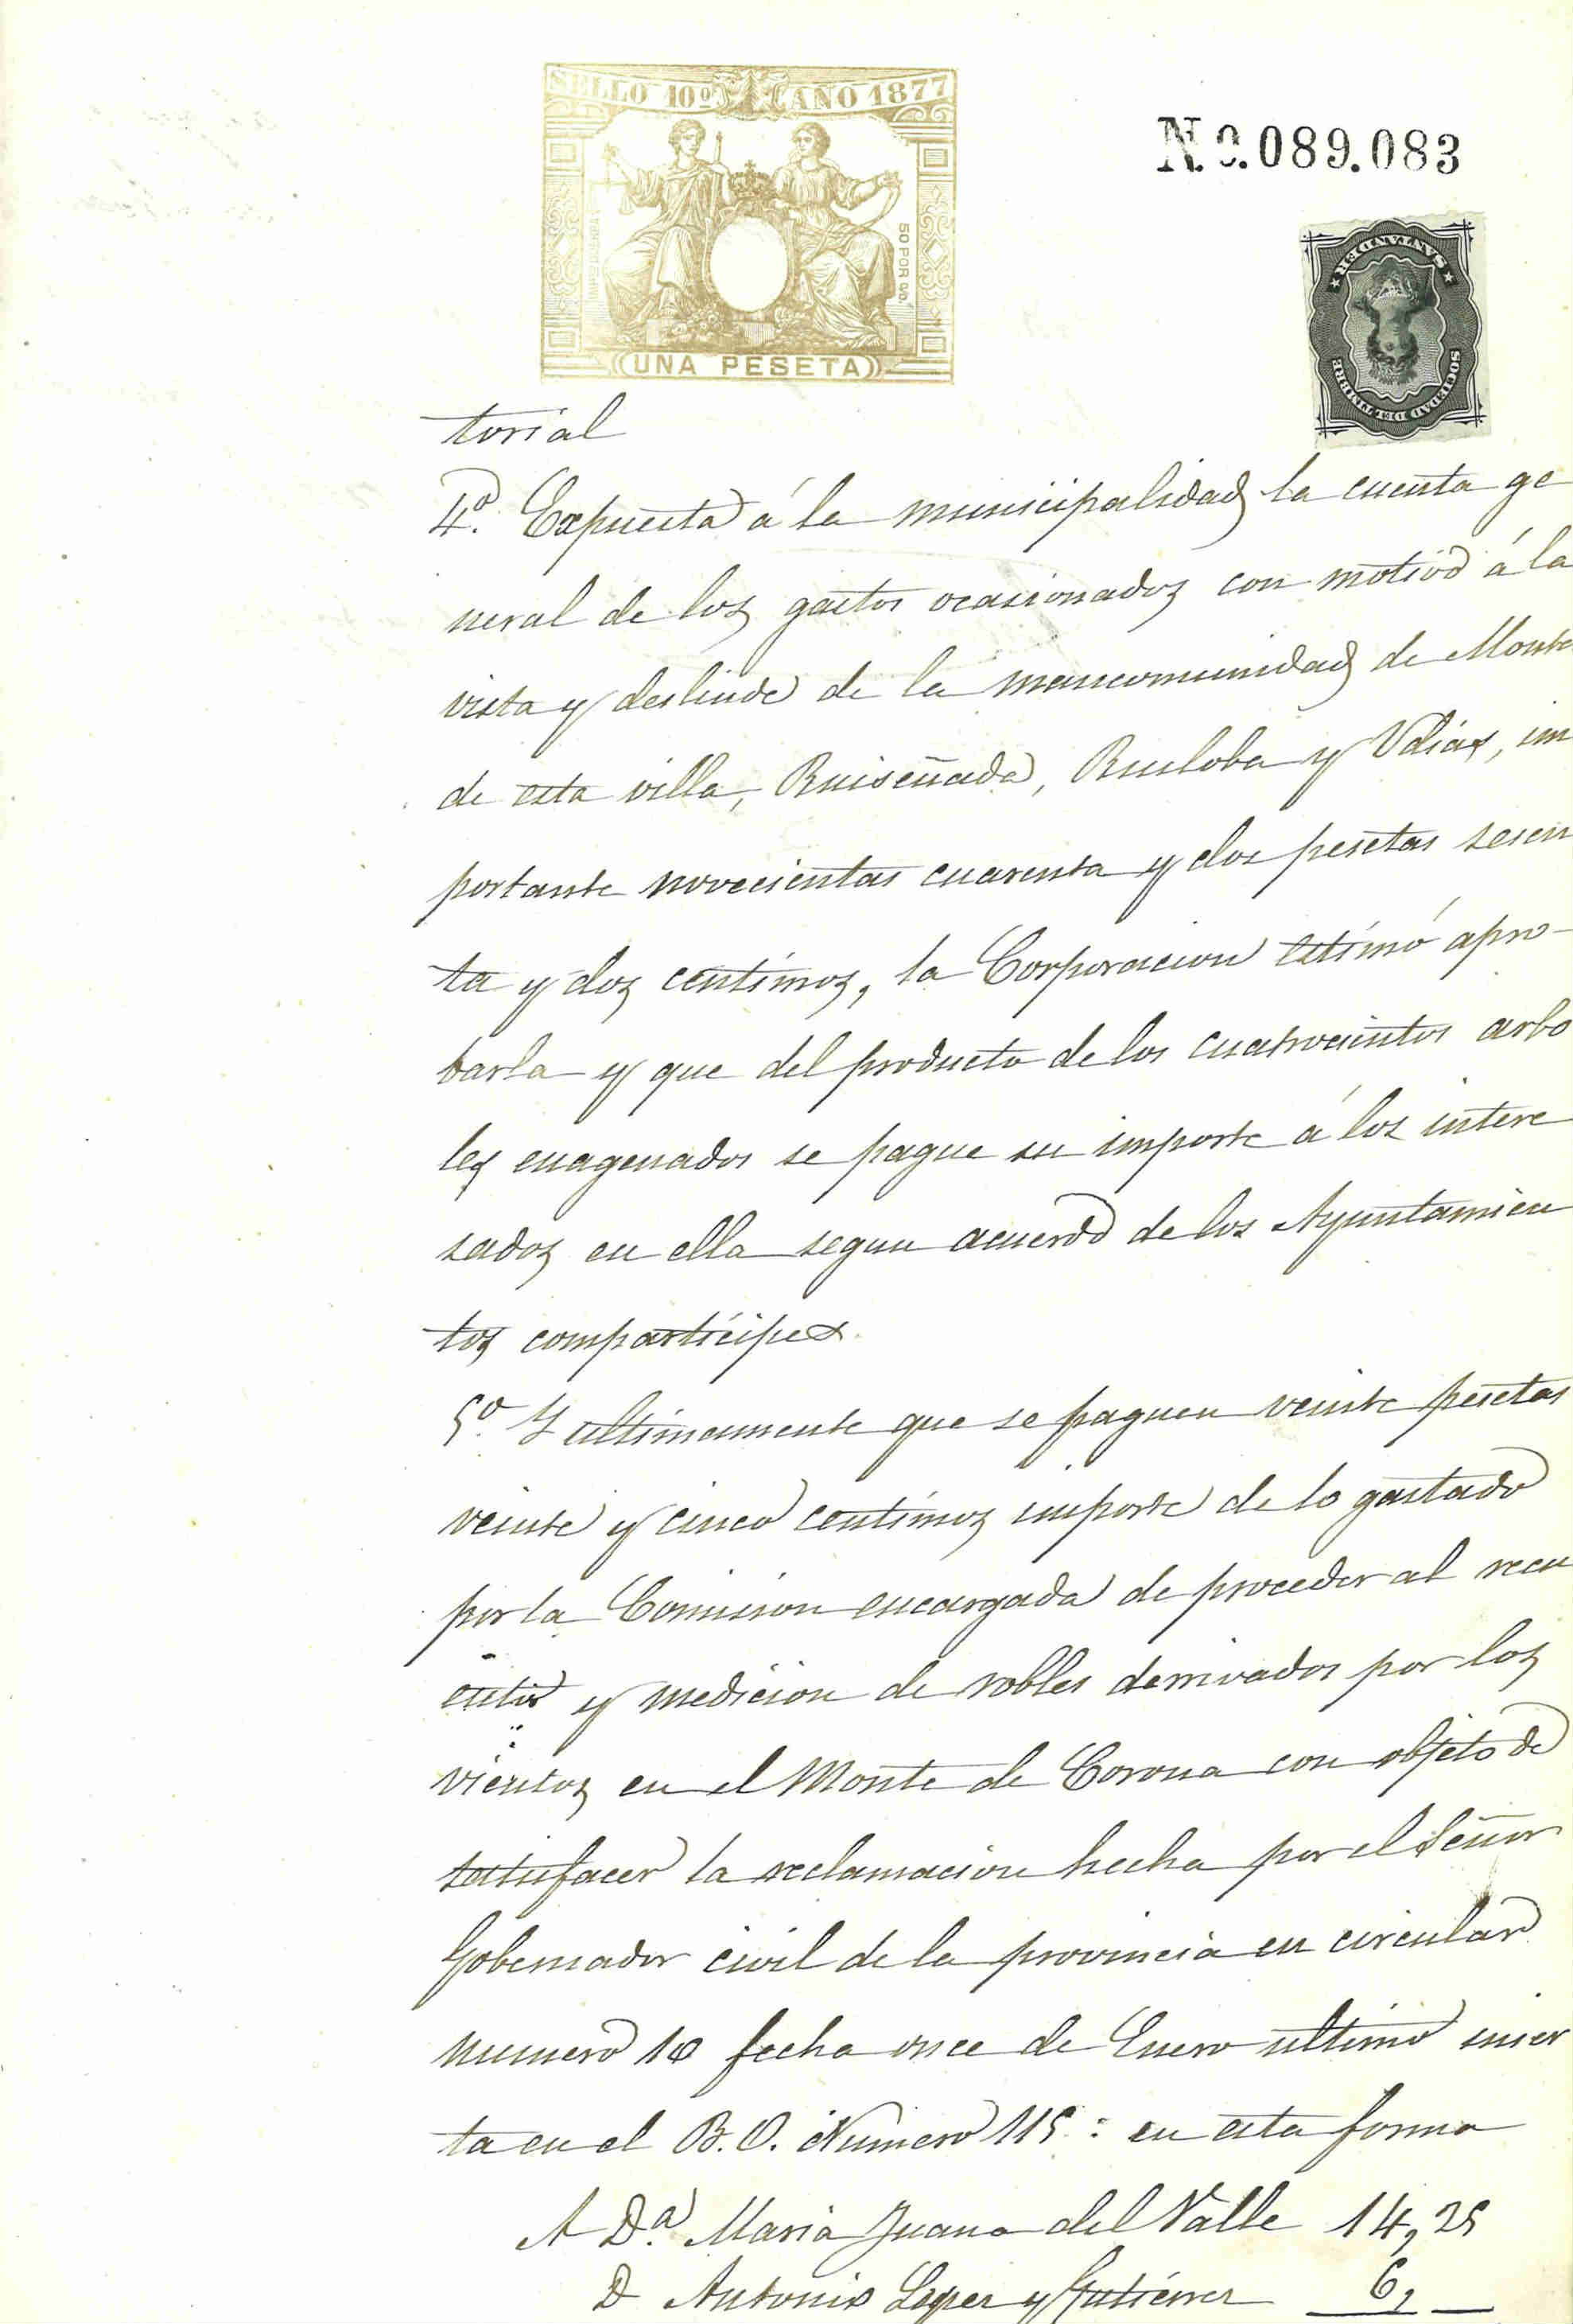 SELLO 10º AÑO 1877
50 POR 00.
UNA PESETA
N.0.089.083
SANTANDER
SOCIEDAD DEL TIMBRE
torial
4º. Expuesta á la municipalidad la cuenta ge
neral de los gastos ocasionados con motivo á la
vista y deslinde de la mancomunidad de Monte
de esta villa, Ruiseñada, Ruiloba y Udias, im
portante novecientas cuarenta y dos pesetas sesen
ta y dos centimos, la Corporacion estimó apro-
barla y que del producto de los cuatrocientos arbo
les enagenados se pague su importe á los intere
sados en ella segun acuerdo de los Ayuntamien
tos comparticipes.
5º. Y ultimamente que se paguen veinte pesetas
veinte y cinco centimos importe de lo gastado
por la Comision encargada de proceder al recu
ento y medicion de robles derrivados por los
vientos en el Monte de Corona con objeto de
satisfacer la reclamacion hecha por el Señor
Gobernador civil de la provincia en circular
numero 10 fecha once de Enero ultimo inser
ta en el B. O. Numero 115: en esta forma
A Dª. Maria Juana del Valle 14,25
D Antonio Lopez y Gutiérrez 6,